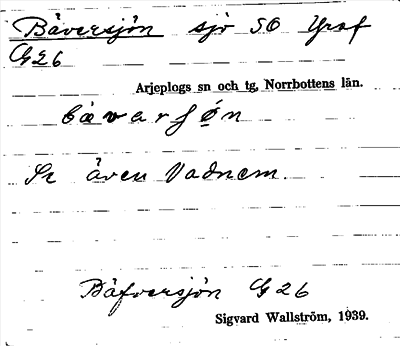 Bäversjön sjö SO Graf
G26
Arjeplogs sn och tg, Norrbottens län.
bävarʃøn
Se även Vadnem.
Bäfversjön G26
Sigvard Wallström, 1939.